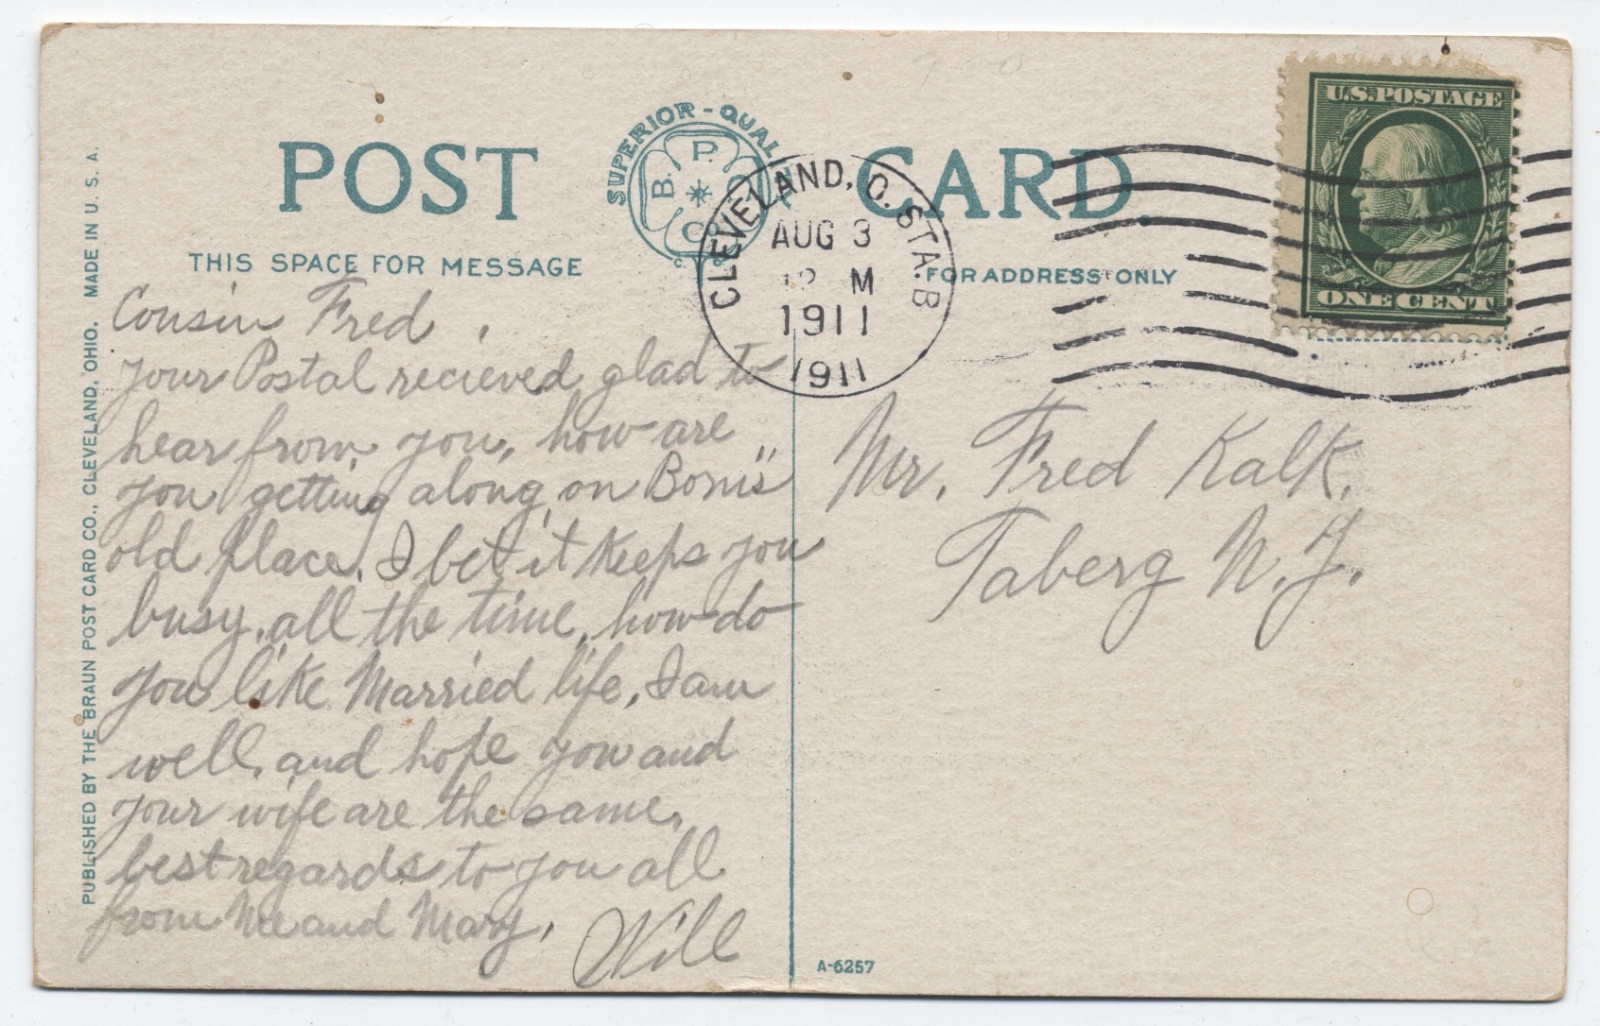 POST CARD
SUPERIOR - QUAL
B. P. C
THIS SPACE FOR MESSAGE
FOR ADDRESS ONLY
CLEVELAND, O. STA. B
AUG 3
M
1911
1911
U.S. POSTAGE
ONE CENT
PUBLISHED BY THE BRAUN POST CARD CO., CLEVELAND, OHIO. MADE IN U. S. A.
Cousin Fred,
your Postal recieved, glad to
hear from you, how are
you getting along, on
old place. I bet it keeps you
busy, all the time, how do
you like Married life, I am
well, and hope you and
your wife are the same,
best regards to you all
from Me and Mary, Will
Mr. Fred Kalk,
Taberg N.Y.
A-6257